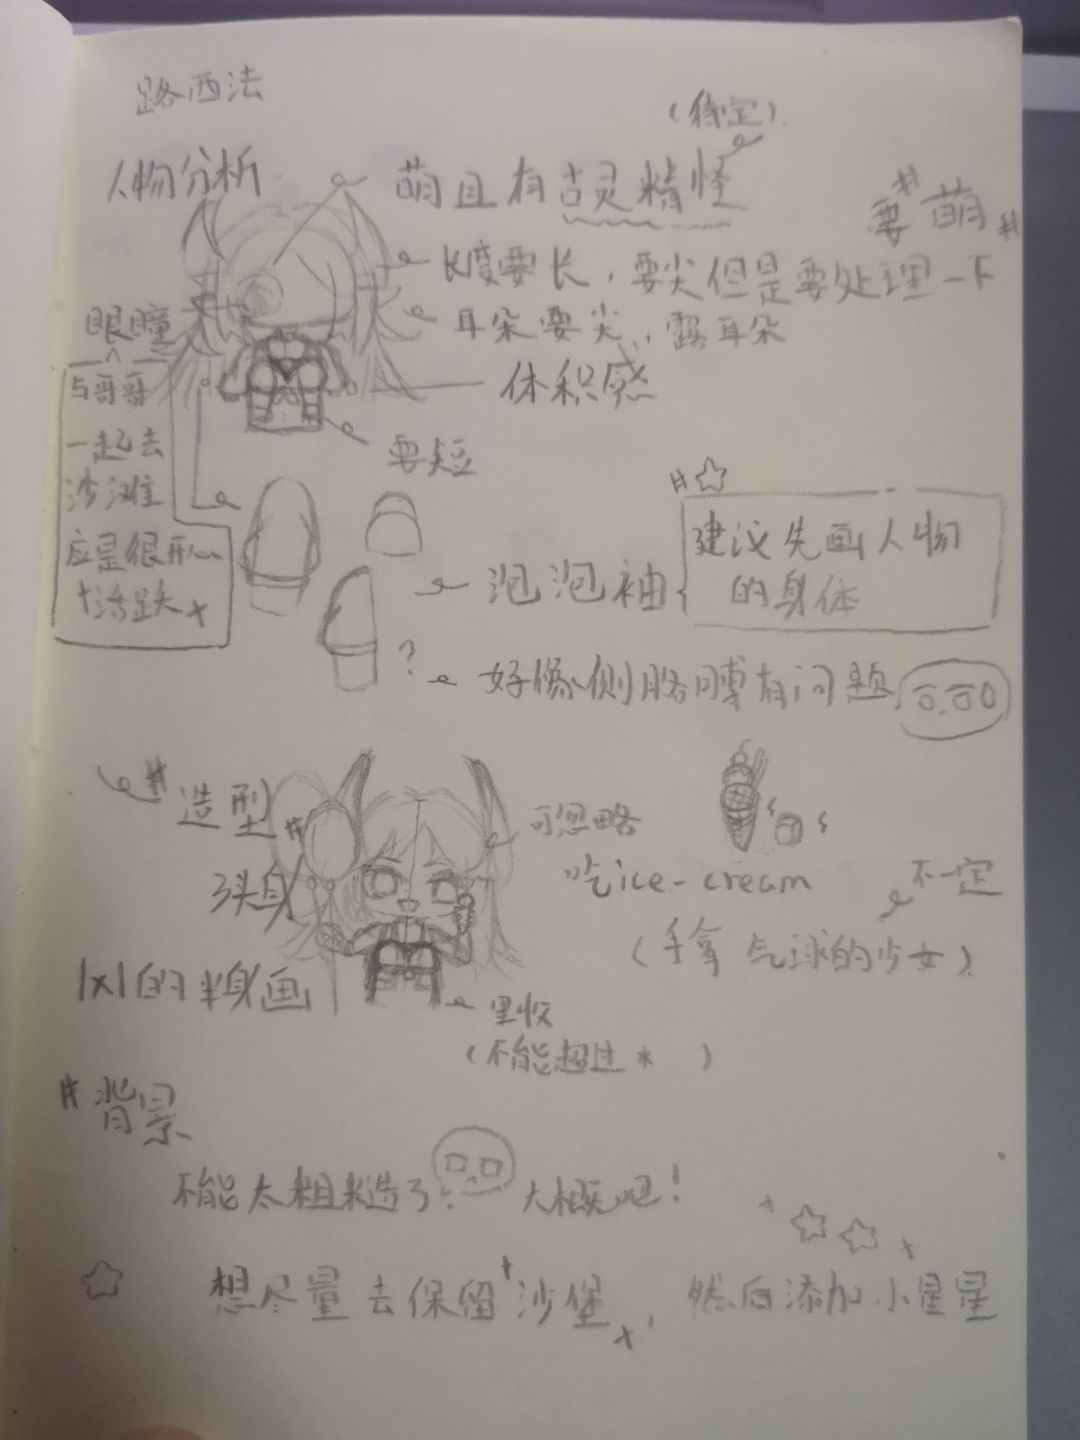 路西法
(待定)
人物分析
萌且有古灵精怪
要萌
长度要长，要尖但是要处理一下
耳朵要尖，露耳朵
眼瞳
体积感
与哥哥
一起去
沙滩
应是很开心
+活跃+
要短
建议先画人物
的身体
泡泡袖
?
好像侧胳膊有问题
造型
可忽略
3头身
吃ice-cream
不一定
(手拿气球的少女)
1×1的半身画
里收
(不能超过* )
背景
不能太粗糙了? 大概吧!
想尽量去保留沙堡，然后添加小星星